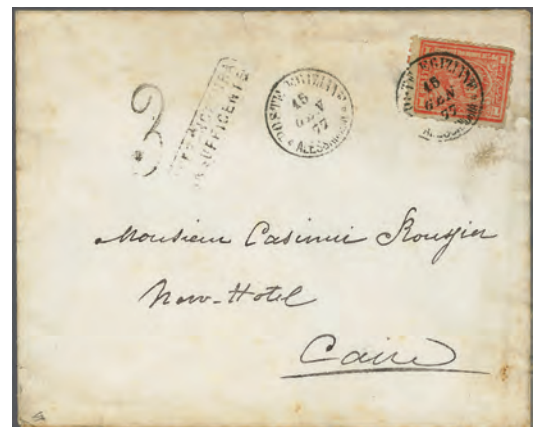 2
AFFRANCATURA
INSUFFICENTE
POSTE EGIZIANE
15
GEN
77
ALESSANDRIA
POSTE EGIZIANE
15
GEN
77
ALESSANDRIA
Monsieur Casimir
New-Hotel
Caire